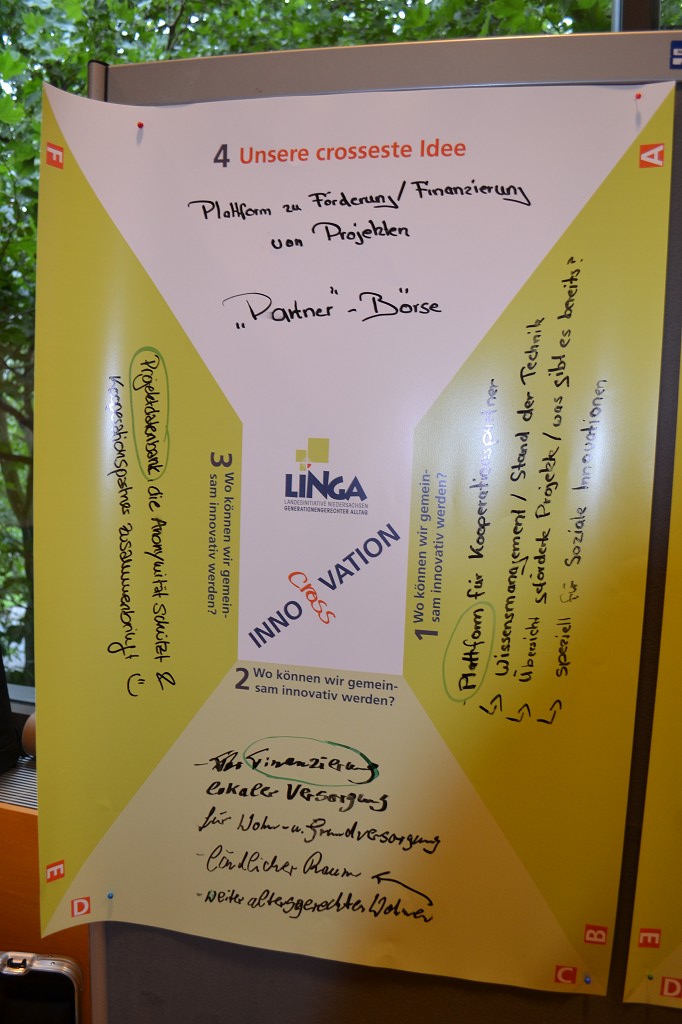 4 Unsere crosseste Idee
Plattform zu Förderung/Finanzierung
von Projekten
„Partner"-Börse
F
A
LINGA
LANDESINITIATIVE NIEDERSACHSEN
GENERATIONENGERECHTER ALLTAG
INNO VATION
cross
1 Wo können wir gemein-
sam innovativ werden?
- Plattform für Kooperationspartner
↳ Wissensmanagement / Stand der Technik
↳ Übersicht geförderte Projekte / was gibt es bereits?
↳ speziell für Soziale Innovationen
2 Wo können wir gemein-
sam innovativ werden?
- Finanzierung
lokaler Versorgung
für Wohn- u. Grundversorgung
- ländlicher Raum
- weiter altersgerechtes Wohnen
3 Wo können wir gemein-
sam innovativ werden?
Projektdatenbank, die Anonymität schützt &
Kooperationspartner zusammenbringt
E
D
B
C
E
D